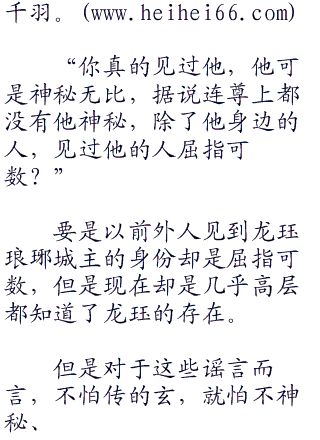 千羽。(www.heihei66.com)
“你真的见过他，他可
是神秘无比，据说连尊上都
没有他神秘，除了他身边的
人，见过他的人屈指可
数？”
要是以前外人见到龙珏
琅琊城主的身份却是屈指可
数，但是现在却是几乎高层
都知道了龙珏的存在。
但是对于这些谣言而
言，不怕传的玄，就怕不神
秘、